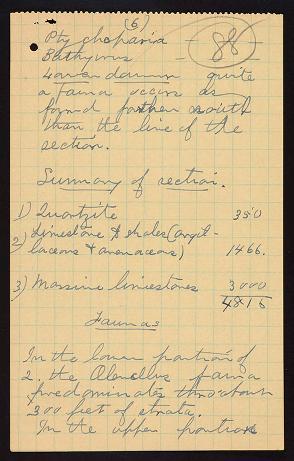 (6)
Ptychoparia - - 88 -
Bathyurus -
quite
a fauna occurs as
found farther south
than the line of the
section.
Summary of section.
1) Quartzite 350
2) Limestone & shales (argil-
laceous & arenaceous) 1466.
3) Massive limestones 3000
4816
Faunas
In the lower portion of
2. the Olenellus fauna
predominates thro about
300 feet of strata.
In the upper portions